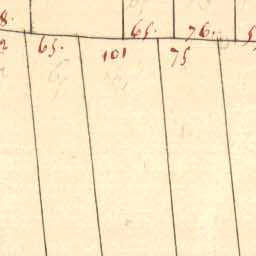 8. 65. 76.
65. 101 75